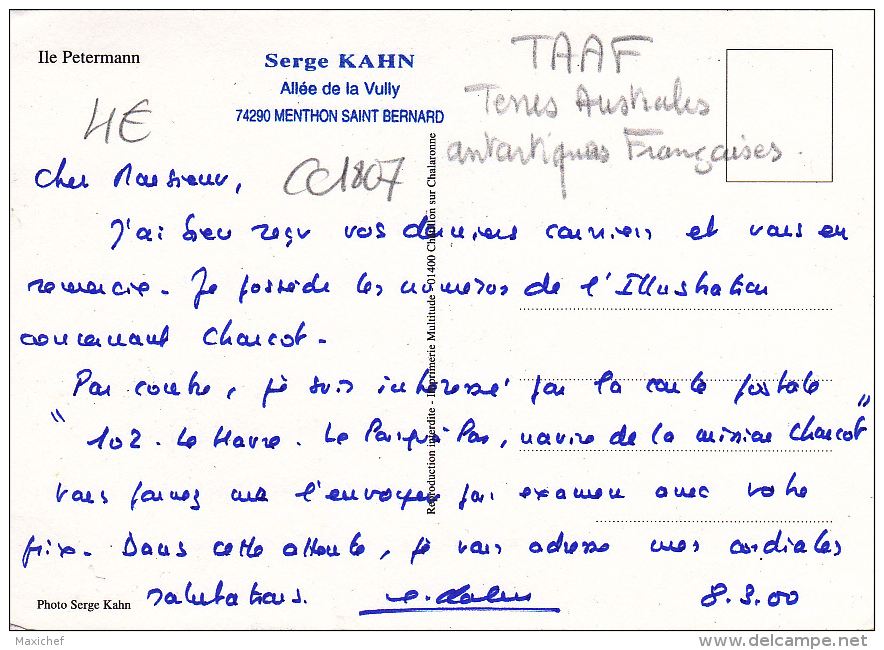 Ile Petermann
Serge KAHN
Allée de la Vully
74290 MENTHON SAINT BERNARD
TAAF
Terres Australes
antartiques Françaises.
4€
CC1807
Cher Monsieur,
J'ai bien reçu vos derniers courriers et vous en
remercie. Je possède les numéros de l'Illustration
concernant Charcot.
Par contre, je suis intéressé par la carte postale
"102. Le Havre. Le Pourquoi Pas, navire de la mission Charcot"
Vous pouvez me l'envoyer par examen avec votre
prix. Dans cette attente, je vous adresse mes cordiales
salutations.
S. Kahn
8.3.00
Photo Serge Kahn
Reproduction interdite - Imprimerie Multitude - 01400 Chatillon sur Chalaronne
Maxichef
delcampe.net